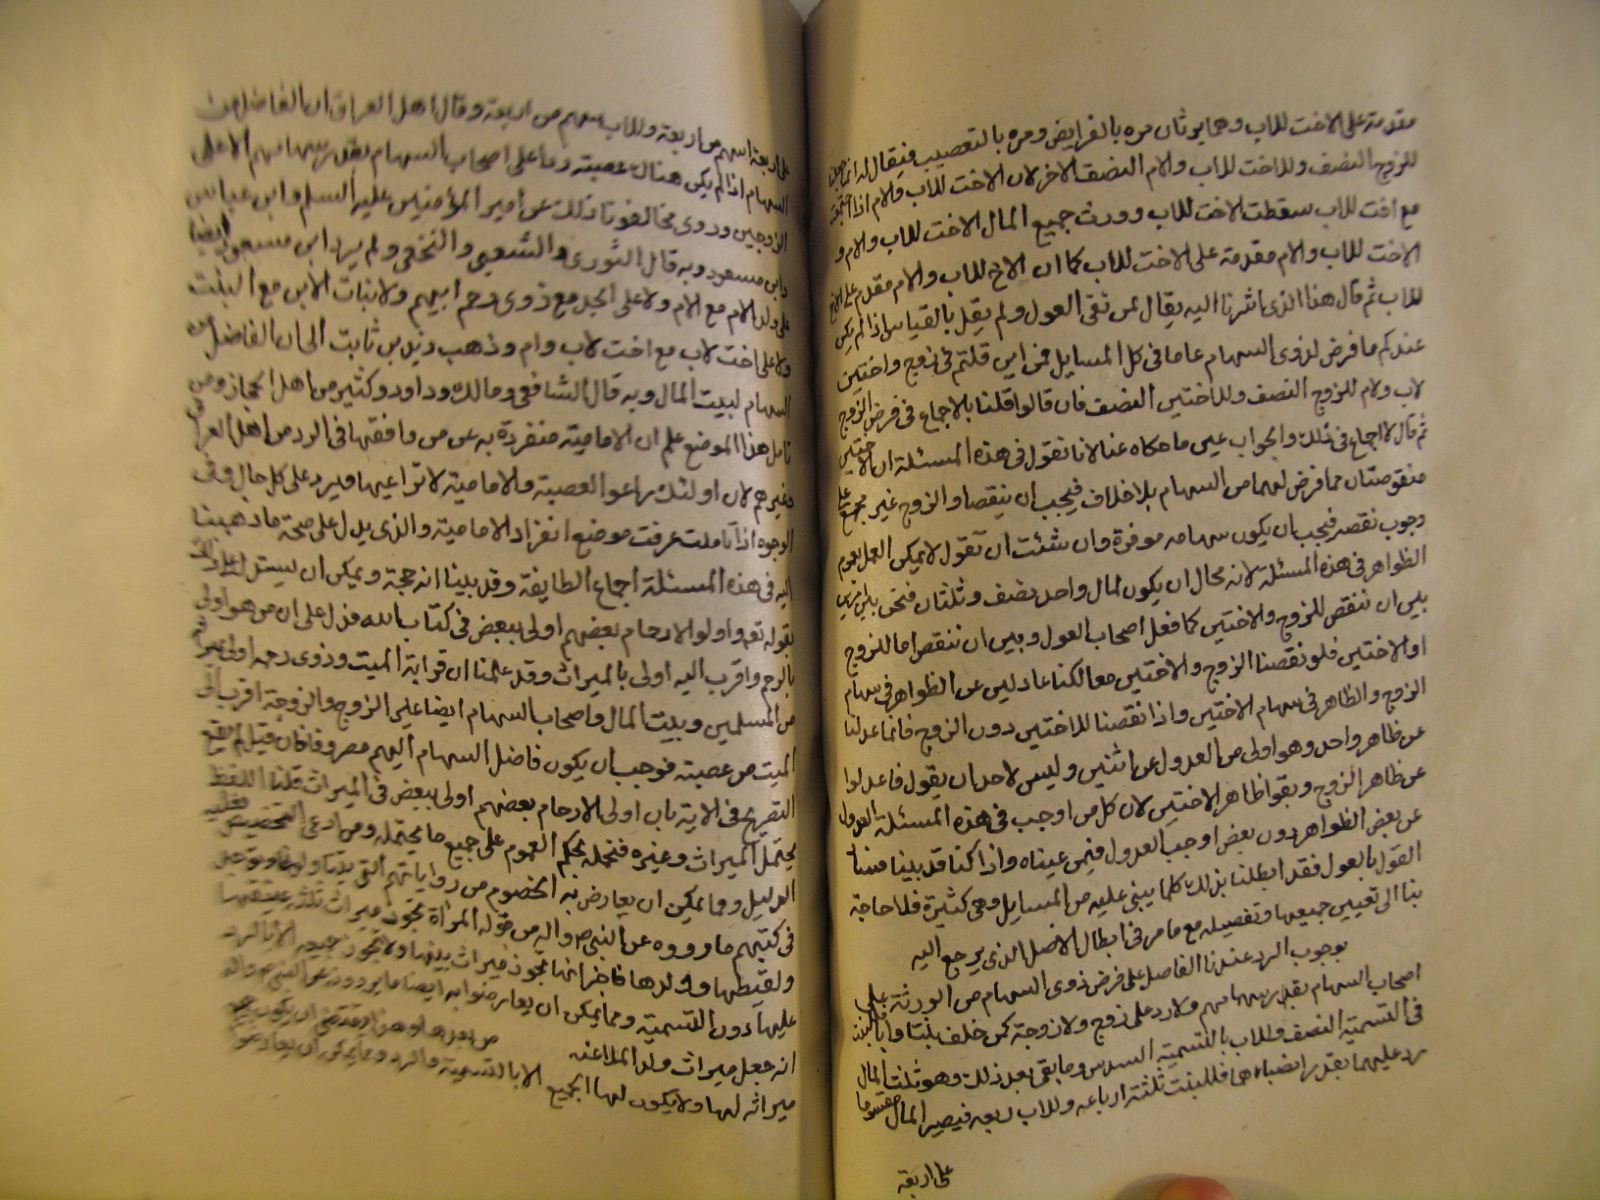 مقدمة على الاخت للاب وهما يرثان مره بالفرايض ومره بالتعصيب فيقال له انما جعلنا
للزوج النصف وللاخت للاب والام النصف الاخر لان الاخت للاب والام اذا اجتمعت
مع اخت للاب سقطت الاخت للاب وورث جميع المال الاخت للاب والام و
الاخت للاب والام مقدمة على الاخت للاب كما ان الاخ للاب والام مقدم على الاخ
للاب ثم قال هذا الذى اشرنا اليه يقال لمن نفى العول ولم يقل بالقياس اذا لم يكن
عندكم ما فرض لذوى السهام عاما فى كل المسايل فمن اين قلتم فى زوج واختين
لاب ولام للزوج النصف وللاختين النصف فان قالوا قلنا بالاجماع فى فرض الزوج
ثم قال لا اجماع فى ذلك والجواب عن ما حكاه عنا لانا نقول فى هذه المسئلة ان الاختين
منقوصتان مما فرض لهما من السهام بلا خلاف فيجب ان ينقصا والزوج غير مجمع على
وجوب نقصه فيجب ان يكون سهامه موفرة وان شئت ان تقول لا يمكن العمل بعموم
الظواهر فى هذه المسئلة لانه محال ان يكون لمال واحد نصف وثلثان فنحن بين امرين
بين ان ننقص للزوج والاختين كما فعل اصحاب العول وبين ان ننقص اما للزوج
او الاختين فلو نقصنا الزوج والاختين معا لكنا عادلين عن الظواهر فى سهام
الزوج والظاهر فى سهام الاختين واذا نقصنا للاختين دون الزوج فانما عدلنا
عن ظاهر واحد وهو اولى من العدول عن اثنين وليس لاحد ان يقول فاعدلوا
عن ظاهر الزوج وبقوا ظاهر الاختين لان كل من اوجب فى هذه المسئلة العدول
عن بعض الظواهر دون بعض اوجب العدول فيمن عيناه واذا كنا قد بينا فساد
القول بالعول فقد ابطلنا بذلك كلما يبنى عليه من المسايل وهى كثيرة فلا حاجة
بنا الى تعيين جميعها وتفصيله مع ما مر فى ابطال الاصل الذى يرجع اليه
بوجوب الرد عندنا الفاصل على فرض ذوى السهام من الورثة على
اصحاب السهام بقدر سهامهم ولا رد على زوج ولا زوجة كمن خلف بنتا وابا فللبنت
فى التسمية النصف وللاب بالتسمية السدس وما بقى بعد ذلك وهو ثلث المال
رد عليهما بقدر انصباءهما فللبنت ثلثة ارباعه وللاب ربعه فيصير المال مقسوما
على اربعة
على اربعة اسهم من اربعة وللاب سهم من اربعة وقال اهل العراق ان الفاضل من
السهام اذا لم يكن هناك عصبة رد على اصحاب السهام بقدر سهامهم الا على
الزوجين وروى مخالفونا ذلك عن امير المؤمنين عليه السلم وابن عباس
وابن مسعود وبه قال الثورى والشعبى والنخعى ولم يرد ابن مسعود ايضا
على ولد الام مع الام ولا على الجد مع ذوى رحم ابيهم ولا بنات الابن مع البنت
ولا على اخت لاب مع اخت لاب وام وذهب زيد بن ثابت الى ان الفاضل من
السهام لبيت المال وبه قال الشافعى ومالك وداود وكثير من اهل الحجاز ومن
تامل هذا الموضع علم ان الامامية منفردة به عن من وافقها فى الرد من اهل العراق
وغيرهم لان اولئك راعوا العصبة والامامية لا تراعيها ويرد على كل حال وفى
الوجوه اذا تاملت عرفت موضع انفراد الامامية والذى يدل على صحة ما ذهبنا
اليه فى هذه المسئلة اجماع الطايفة وقد بينا انه حجة ويمكن ان يستدل على ذلك
بقوله تع واولو الارحام بعضهم اولى ببعض فى كتاب الله فدل على ان من هو اولى
بالرحم واقرب اليه اولى بالميراث وقد علمنا ان قرابة الميت وذوى رحمه اولى بميراثه
من المسلمين وبيت المال واصحاب السهام ايضا غير الزوج والزوجة اقرب الى
الميت من عصبته فوجب ان يكون فاضل السهام اليهم مصروفا فان قيل لم يقع
التصريح فى الاية بان اولى الارحام بعضهم اولى ببعض فى الميراث قلنا اللفظ
يحتمل الميراث وغيره فنحمله بحكم العموم على جميع ما يحتمله ومن ادعى التخصيص فعليه
الدليل ومما يمكن ان يعارض به الخصوم من رواياتهم التى
فى كتبهم ما رووه عن النبى ص واله من قوله المراة تحوز ميراث ثلثة عتيقها
ولقيطها وولدها فاخبر انها تحوز ميراث بنيها ولا تحوز جميعه الا بالرد
عليها دون التسمية ومما يمكن ان يعارضوا به ايضا ما يروونه عن النبى ص واله
انه جعل ميراث ولد الملاعنه
ميراثه لها ولا يكون لها الجميع الا بالتسمية والرد ومما يمكن ان